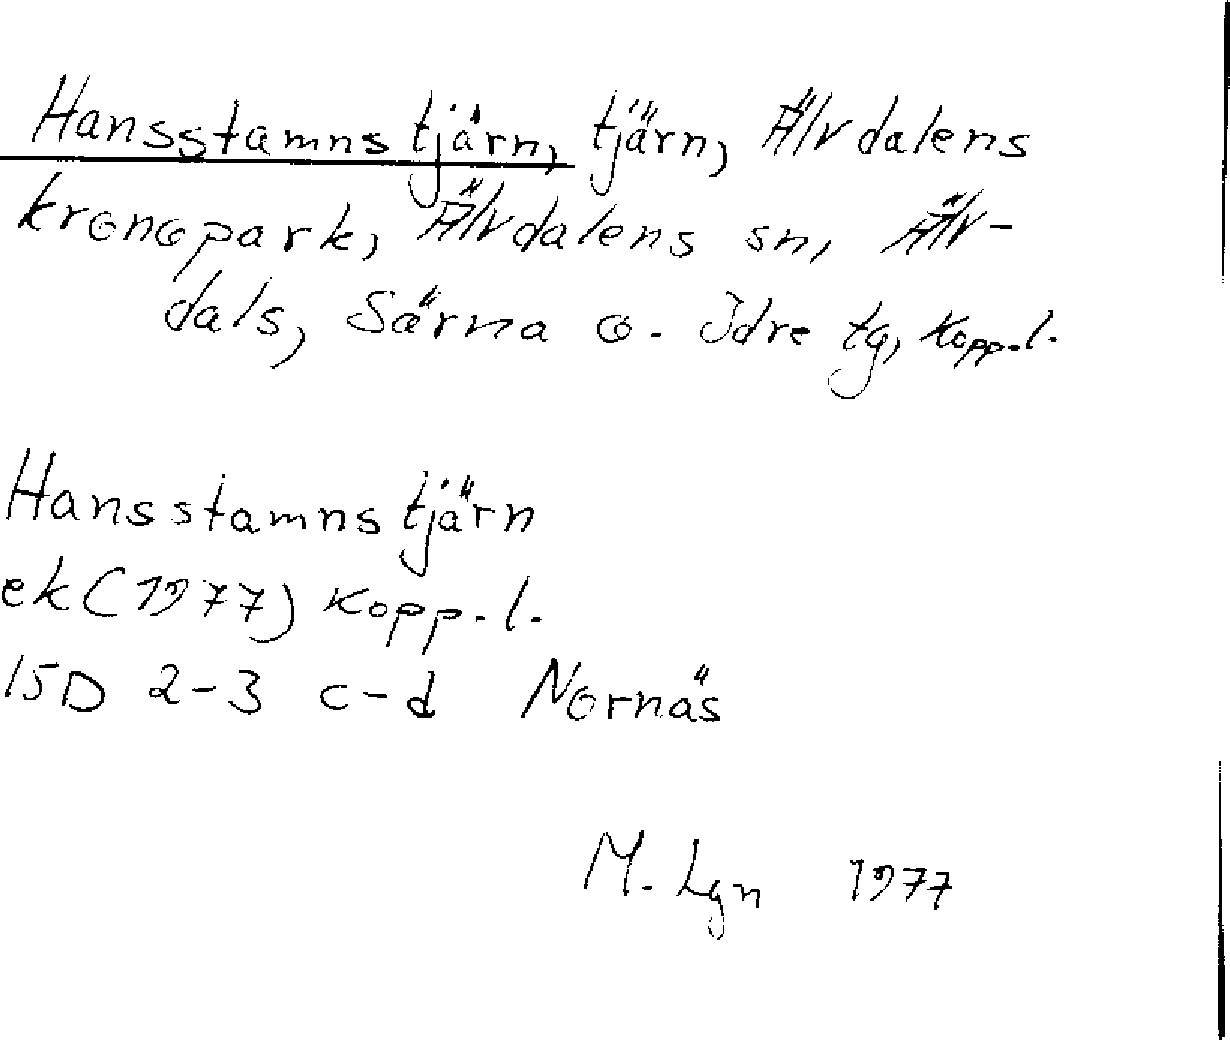 Hansstamnstjärn, tjärn, Älvdalens
kronopark, Älvdalens sn, Älv-
dals, Särna o. Idre tg, Kopp.l.
Hansstamnstjärn
ek (1977) Kopp.l.
15D 2-3 c-d Nornäs
M. Lgn 1977